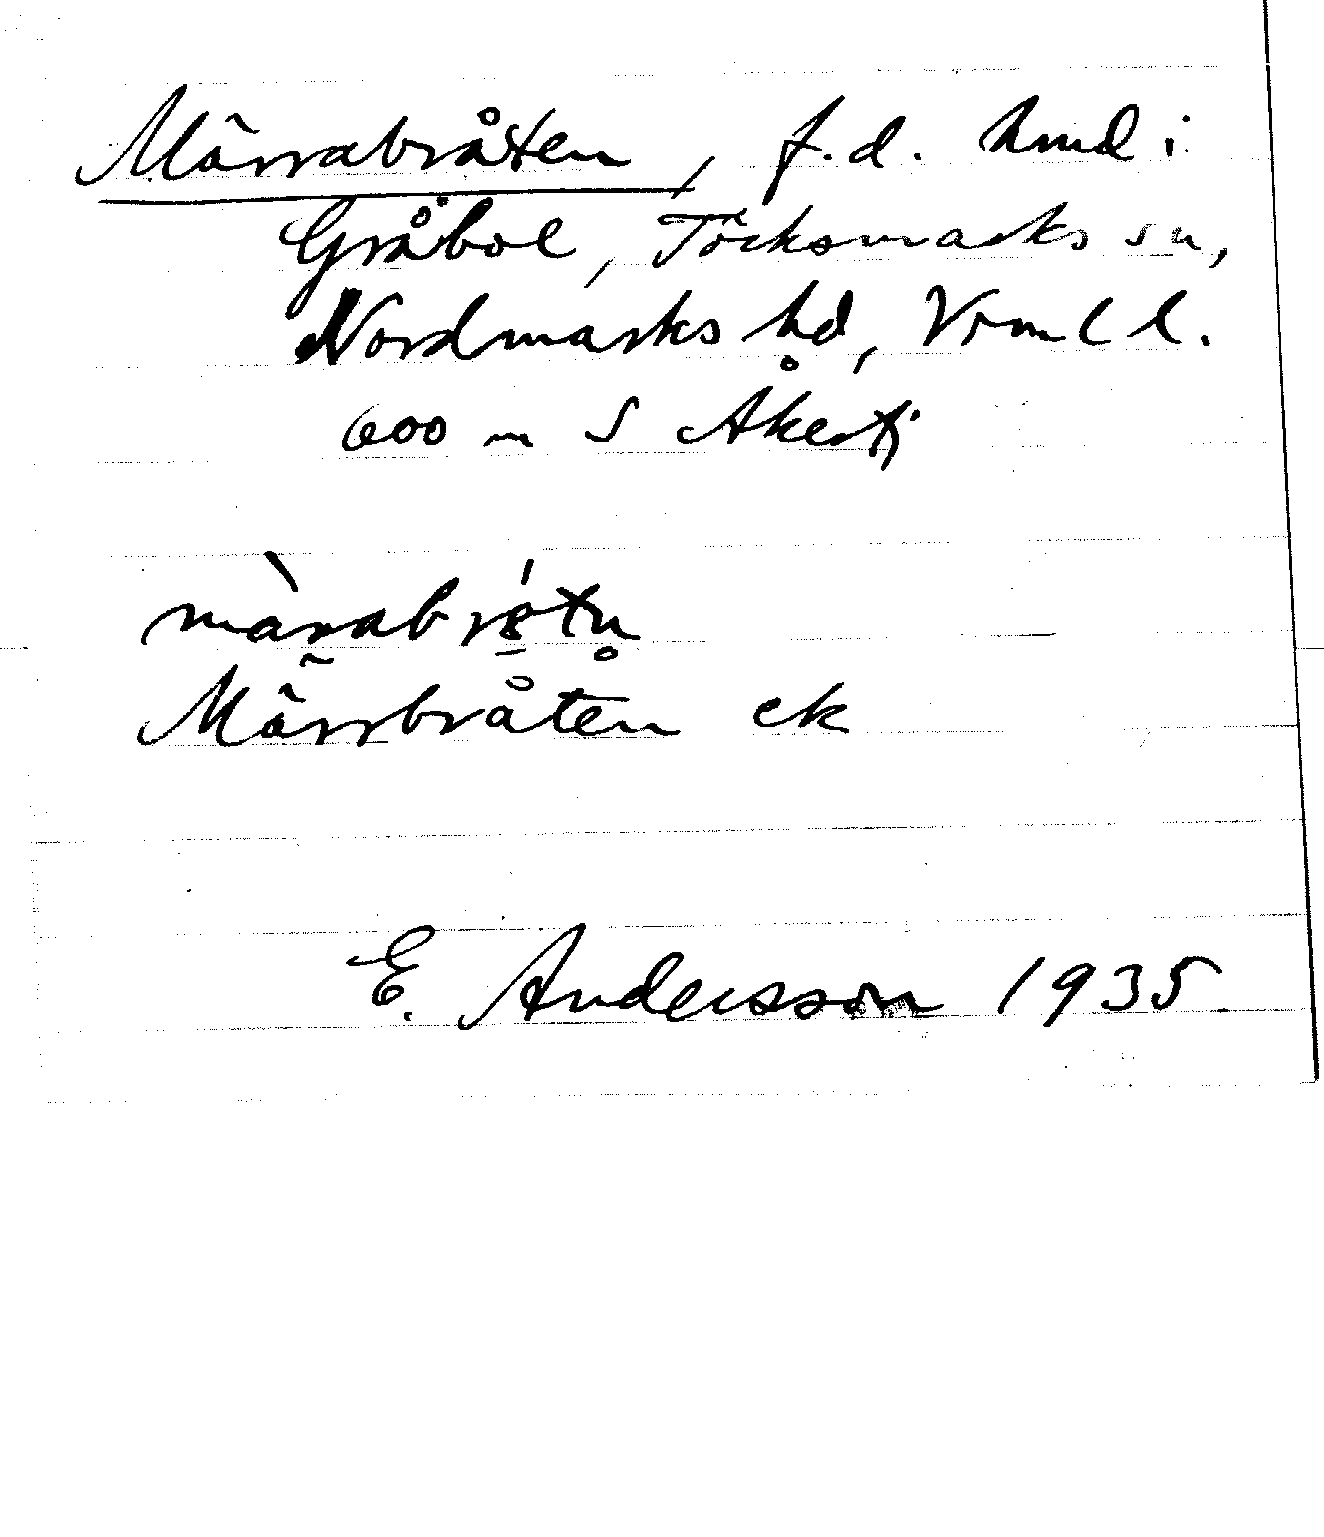 Märrabråten, f.d. hmd i
Gråbol, Töcksmarks sn,
Nordmarks hd, Vrml l.
600 m S Åkertj
Märrbråten ek
E. Andersson 1935